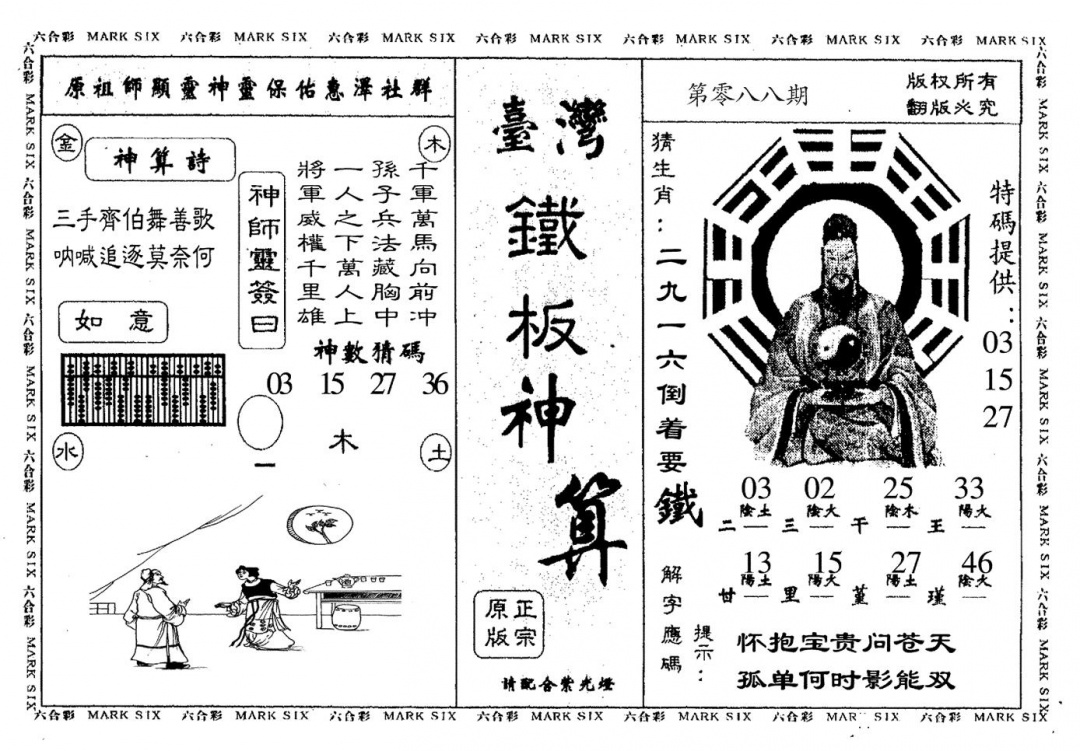 六合彩 MARK SIX 六合彩 MARK SIX 六合彩 MARK SIX 六合彩 MARK SIX 六合彩 MARK SIX 六合彩 MARK SIX 六合彩 MARK SIX
六合彩 MARK SIX 六合彩 MARK SIX 六合彩 MARK SIX 六合彩 MARK SIX 六合彩 MARK SIX
原祖師顯靈神靈保佑惠澤社群
金
木
神算詩
三手齊伯舞善歌
吶喊追逐莫奈何
如意
神師靈簽曰
千軍萬馬向前冲
孫子兵法藏胸中
一人之下萬人上
將軍威權千里雄
神數猜碼
03 15 27 36
水
木
土
一
臺灣
鐵板神算
正宗
原版
請配合紫光燈
第零八八期
版权所有
翻版必究
猜生肖：二九一六倒着要鐵
特碼提供：
03
15
27
03 02 25 33
陰土 陰火 陰木 陽火
二 三 干 王
13 15 27 46
陽土 陽火 陽土 陰火
廿 里 堇 瑾
解字應碼
提示：
怀抱宝贵问苍天
孤单何时影能双
六合彩 MARK SIX 六合彩 MARK SIX 六合彩 MARK SIX 六合彩 MARK SIX 六合彩 MARK SIX
六合彩 MARK SIX 六合彩 MARK SIX 六合彩 MARK SIX 六合彩 MARK SIX 六合彩 MARK SIX 六合彩 MARK SIX 六合彩 MARK SIX